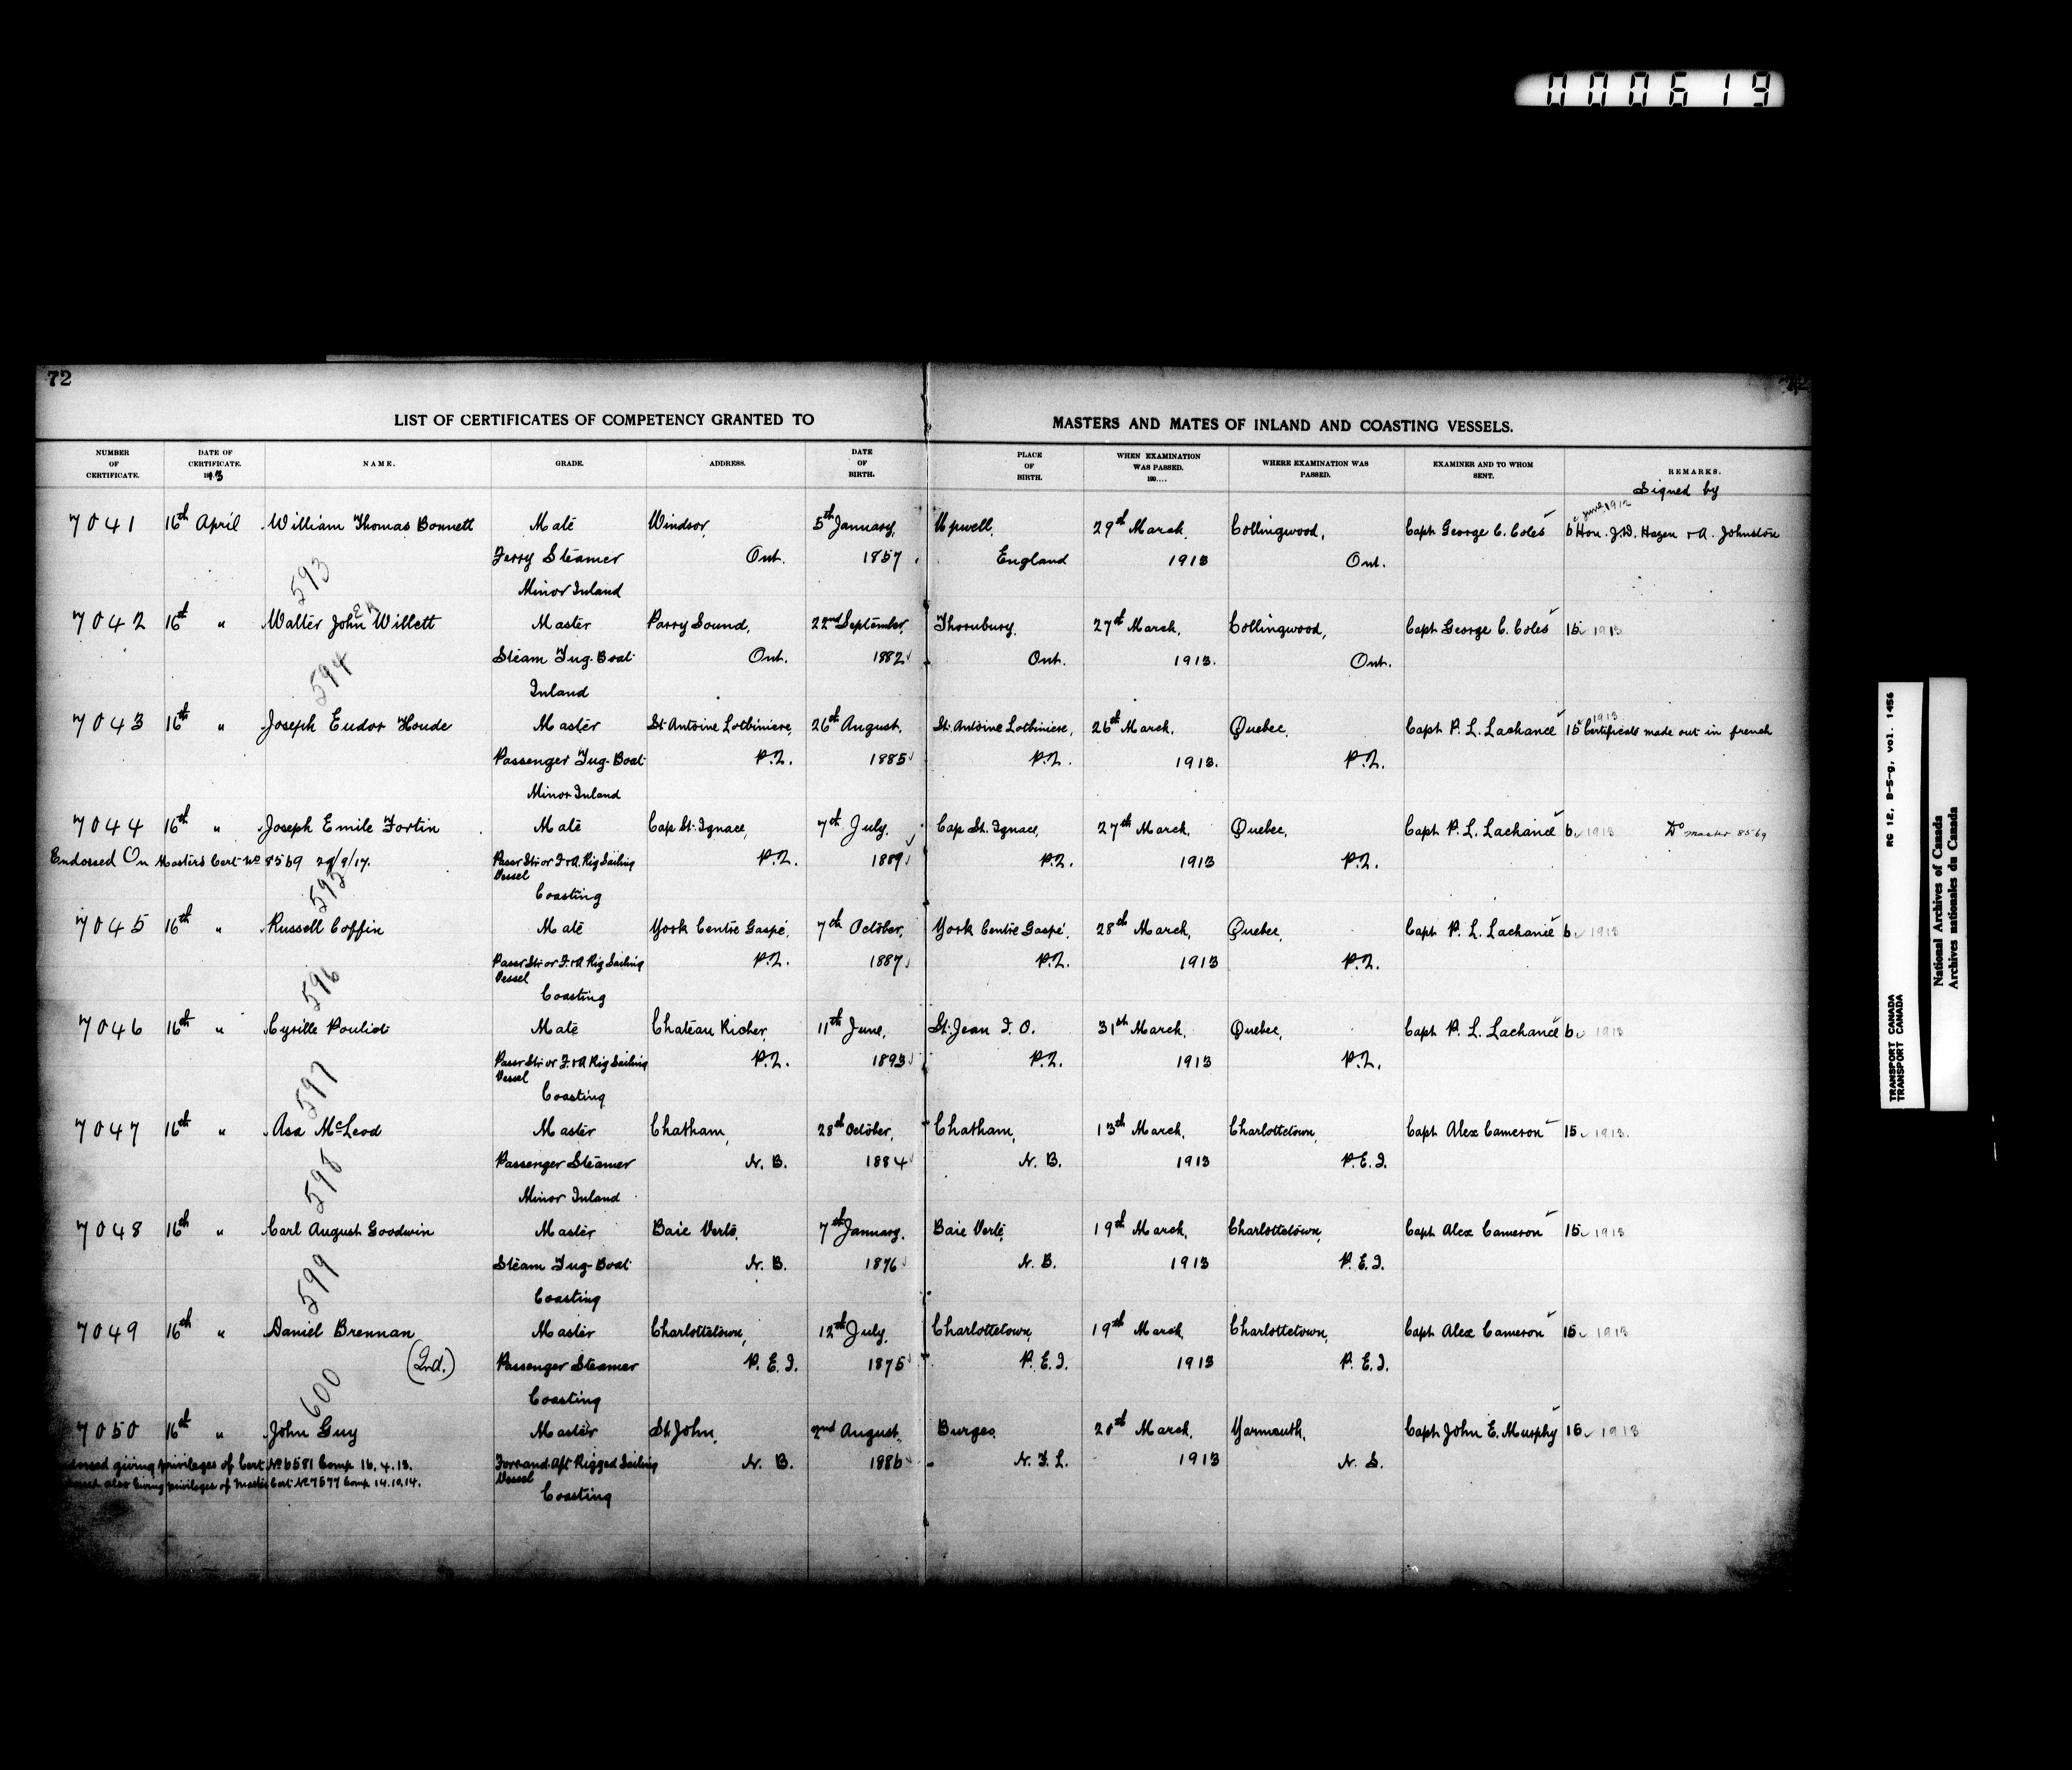 000619
72
72
LIST OF CERTIFICATES OF COMPETENCY GRANTED TO MASTERS AND MATES OF INLAND AND COASTING VESSELS.
NUMBER OF CERTIFICATE. DATE OF CERTIFICATE. 1913 NAME. GRADE. ADDRESS. DATE OF BIRTH. PLACE OF BIRTH. WHEN EXAMINATION WAS PASSED. 190.... WHERE EXAMINATION WAS PASSED. EXAMINER AND TO WHOM SENT. REMARKS.
Signed by
June 1912
7041 16th April William Thomas Bonnett Mate Windsor, 5th January, Upwell, 29th March, Collingwood, Capt George C. Coles 6 Hon. J.D. Hazen + A. Johnston
Ferry Steamer Ont. 1857 England 1913 Ont.
Minor Inland
593
7042 16th " Walter John Willett Master Parry Sound, 22nd September, Thornbury, 27th March, Collingwood, Capt George C. Coles 15 1913
Steam Tug-Boat Ont. 1882 Ont. 1913. Ont.
Inland
594
7043 16th " Joseph Eudor Houde Master St Antoine Lotbiniere, 26th August, St. Antoine Lotbiniere, 26th March, Quebec, Capt P. L. Lachance 15 1913 Certificate made out in french
Passenger Tug-Boat P.Q. 1885 P.Q. 1913. P.Q.
Minor Inland
7044 16th " Joseph Emile Fortin Mate Cap St. Ignace, 7th July, Cap St. Ignace, 27th March, Quebec, Capt P. L. Lachance 6 1913 Do master 8569
Endorsed On Masters Cert No 8569 29/9/17. Passr Str or F. & A. Rig Sailing Vessel P.Q. 1889 P.Q. 1913 P.Q.
Coasting
595
7045 16th " Russell Coffin Mate York Centre Gaspé, 7th October, York Centre Gaspé, 28th March, Quebec, Capt P. L. Lachance 6 1913
Passr Str or F. & A Rig Sailing Vessel P.Q. 1887 P.Q. 1913 P.Q.
Coasting
596
7046 16th " Cyrille Pouliot Mate Chateau Richer, 11th June, St. Jean I. O. 31st March, Quebec, Capt P. L. Lachance 6 1913
Passr Str or F. & A Rig Sailing Vessel P.Q. 1893 P.Q. 1913 P.Q.
Coasting
597
7047 16th " Asa McLeod Master Chatham, 28th October, Chatham, 13th March, Charlottetown, Capt Alex Cameron 15 1913.
Passenger Steamer N. B. 1884 N. B. 1913 P.E.I.
Minor Inland
598
7048 16th " Carl August Goodwin Master Baie Verte, 7th January, Baie Verte, 19th March, Charlottetown, Capt Alex Cameron 15 1913
Steam Tug-Boat N. B. 1876 N. B. 1913 P.E.I.
Coasting
599
7049 16th " Daniel Brennan Master Charlottetown, 12th July, Charlottetown, 19th March, Charlottetown, Capt Alex Cameron 15 1913
(2nd.) Passenger Steamer P. E. I. 1875 P.E.I. 1913 P. E.I.
Coasting
600
7050 16th " John Guy Master St. John, 2nd August, Burgeo, 20th March, Yarmouth, Capt John E. Murphy 15 1913
giving privileges of Cert No 6581 Comp 16.4.13. Fore and Aft Rigged Sailing Vessel N. B. 1886 N. F. L. 1913 N. S.
also giving privileges of Master Cert No 7577 Comp 14.10.14. Coasting
TRANSPORT CANADA RG 12, B-5-g, vol. 1456
TRANSPORT CANADA
National Archives of Canada
Archives nationales du Canada